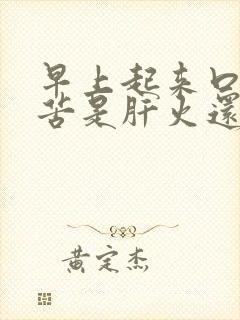 早上起来口
苦是肝火還
黄定杰